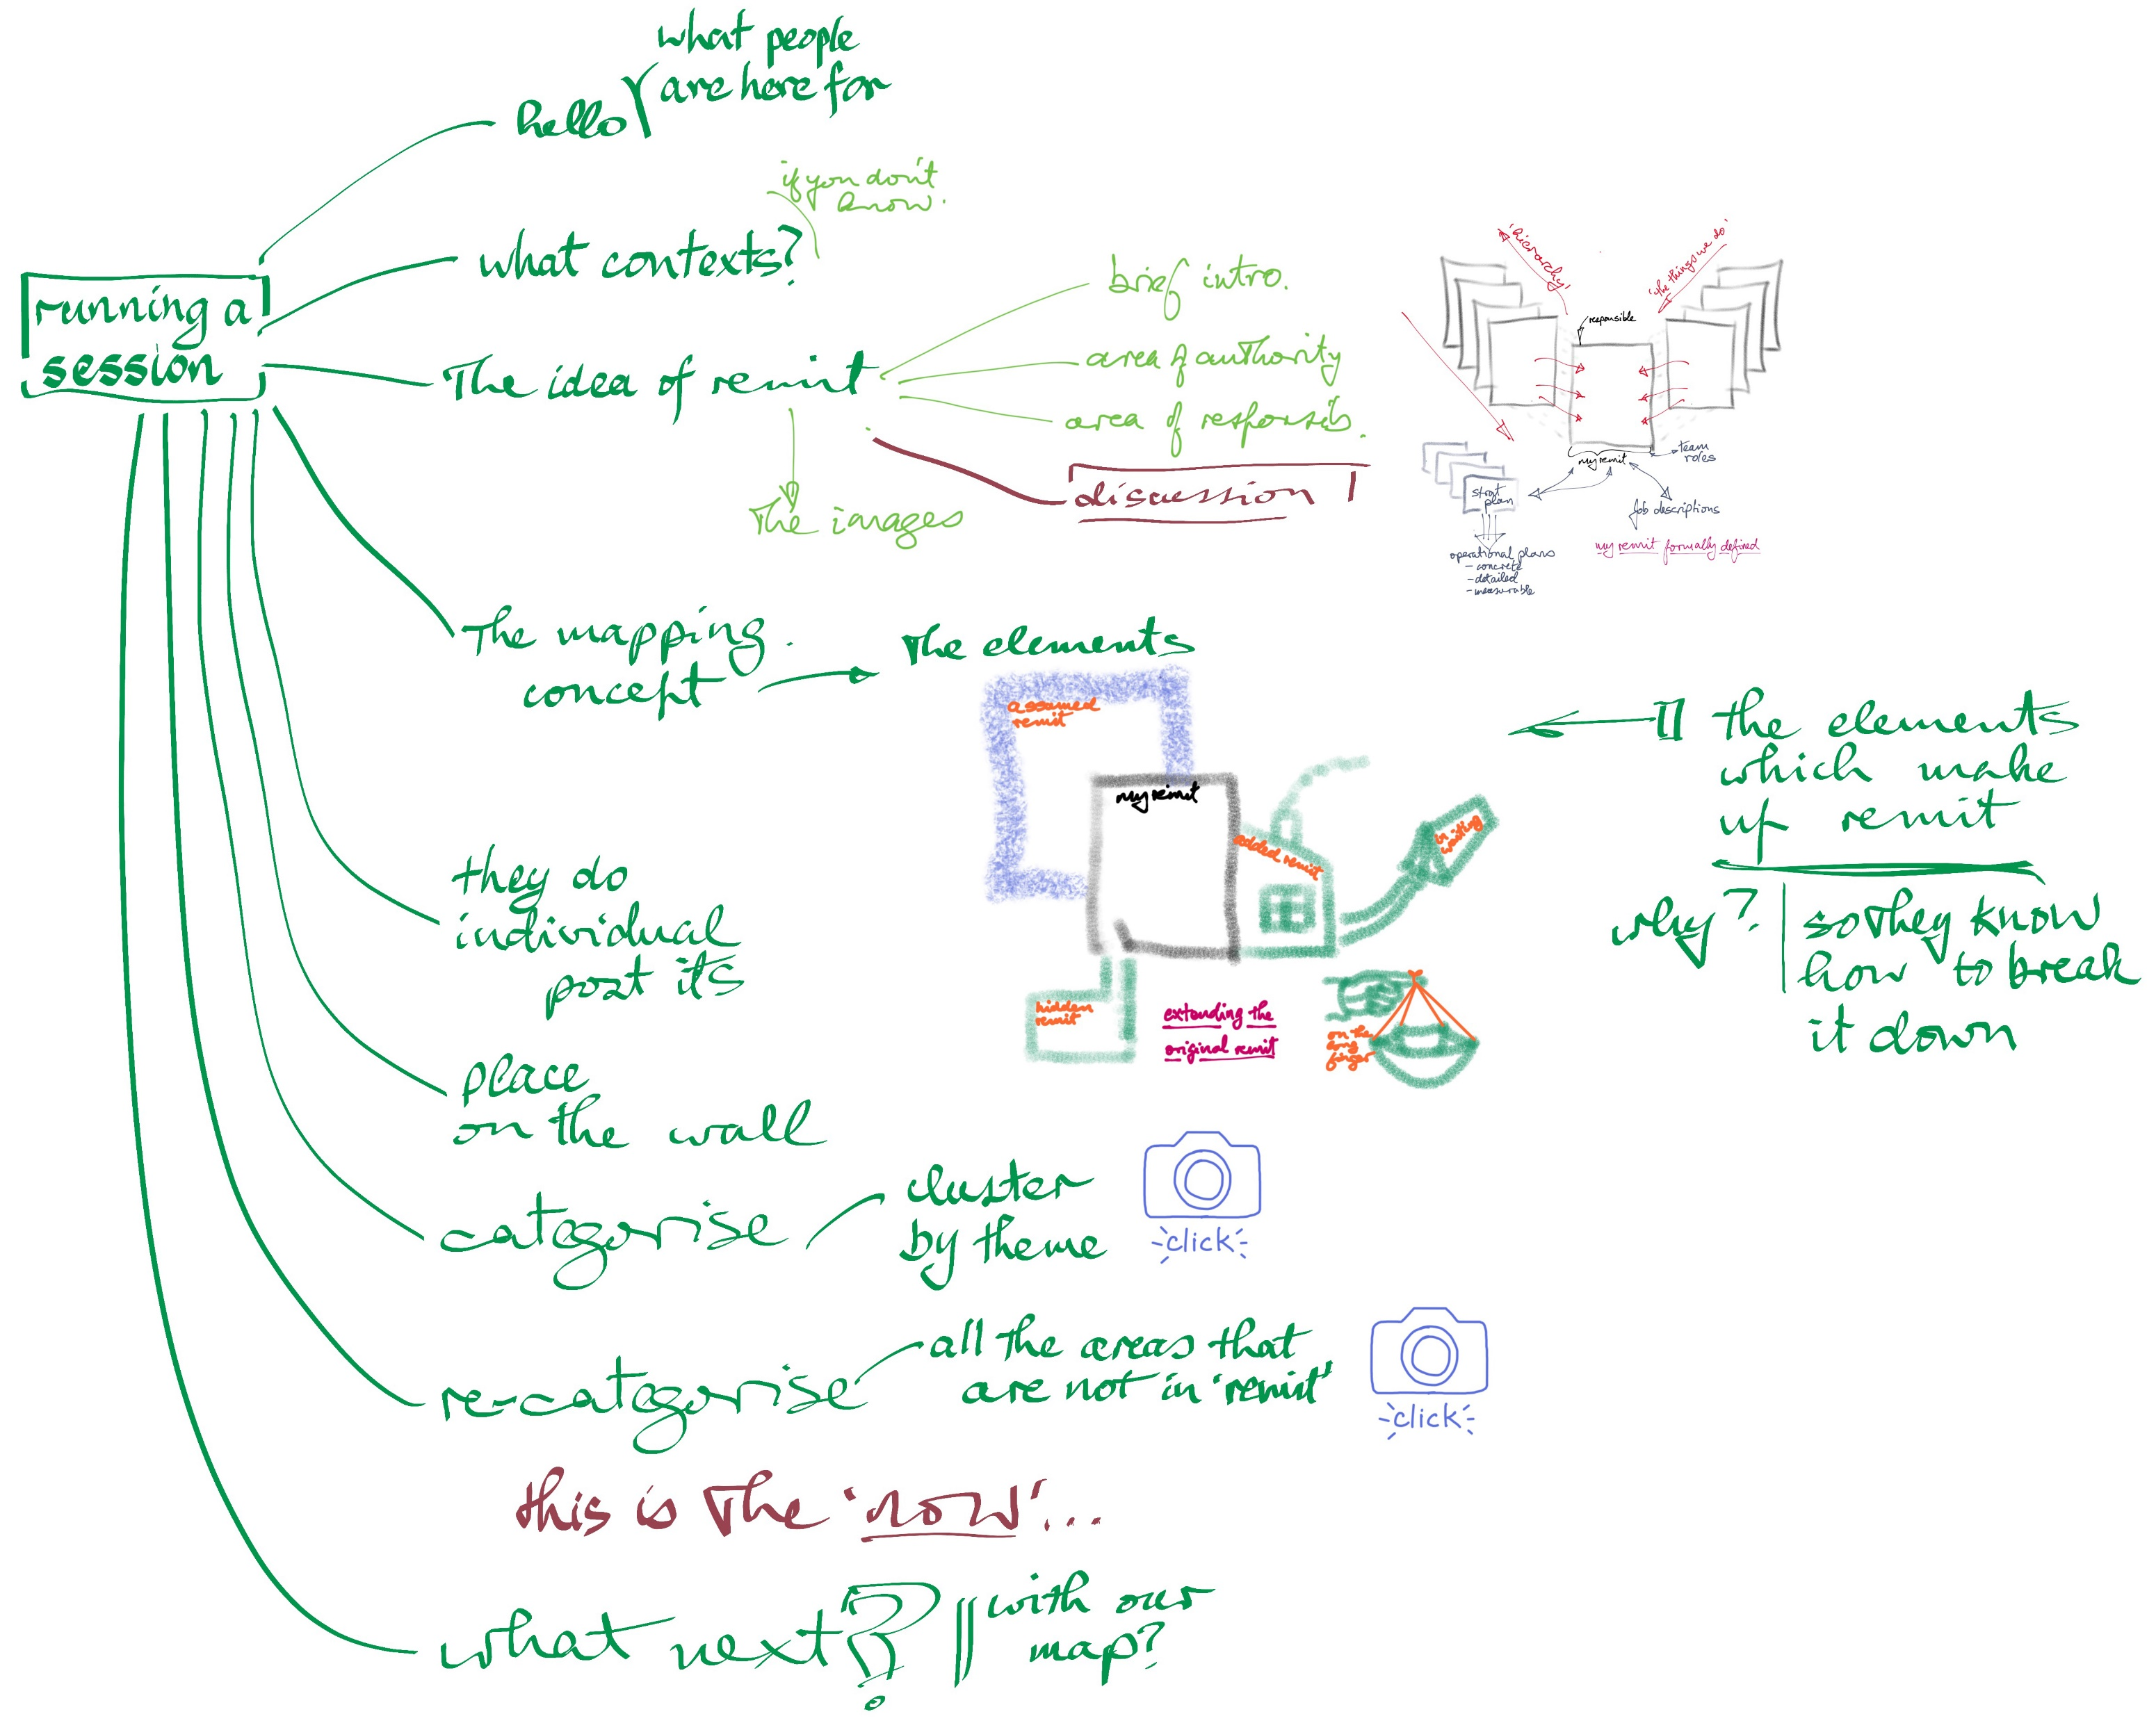 what people
are here for
hello
if you don't
know.
what contexts?
running a
session
The idea of remit
brief intro.
area of authority
area of responsib.
discussion
The images
'hierarchy'
'the things we do'
responsible
my remit
team
roles
strat
plan
job descriptions
operational plans
- concrete
- detailed
- measurable
my remit formally defined
The mapping
concept
The elements
assumed
remit
my remit
added remit
in
waiting
hidden
remit
extending the
original remit
on the
long
finger
the elements
which make
up remit
why?
so they know
how to break
it down
they do
individual
post its
place
on the wall
categorise
cluster
by theme
click
re-categorise
all the areas that
are not in 'remit'
click
this is the 'now'...
what next?
with our
map?